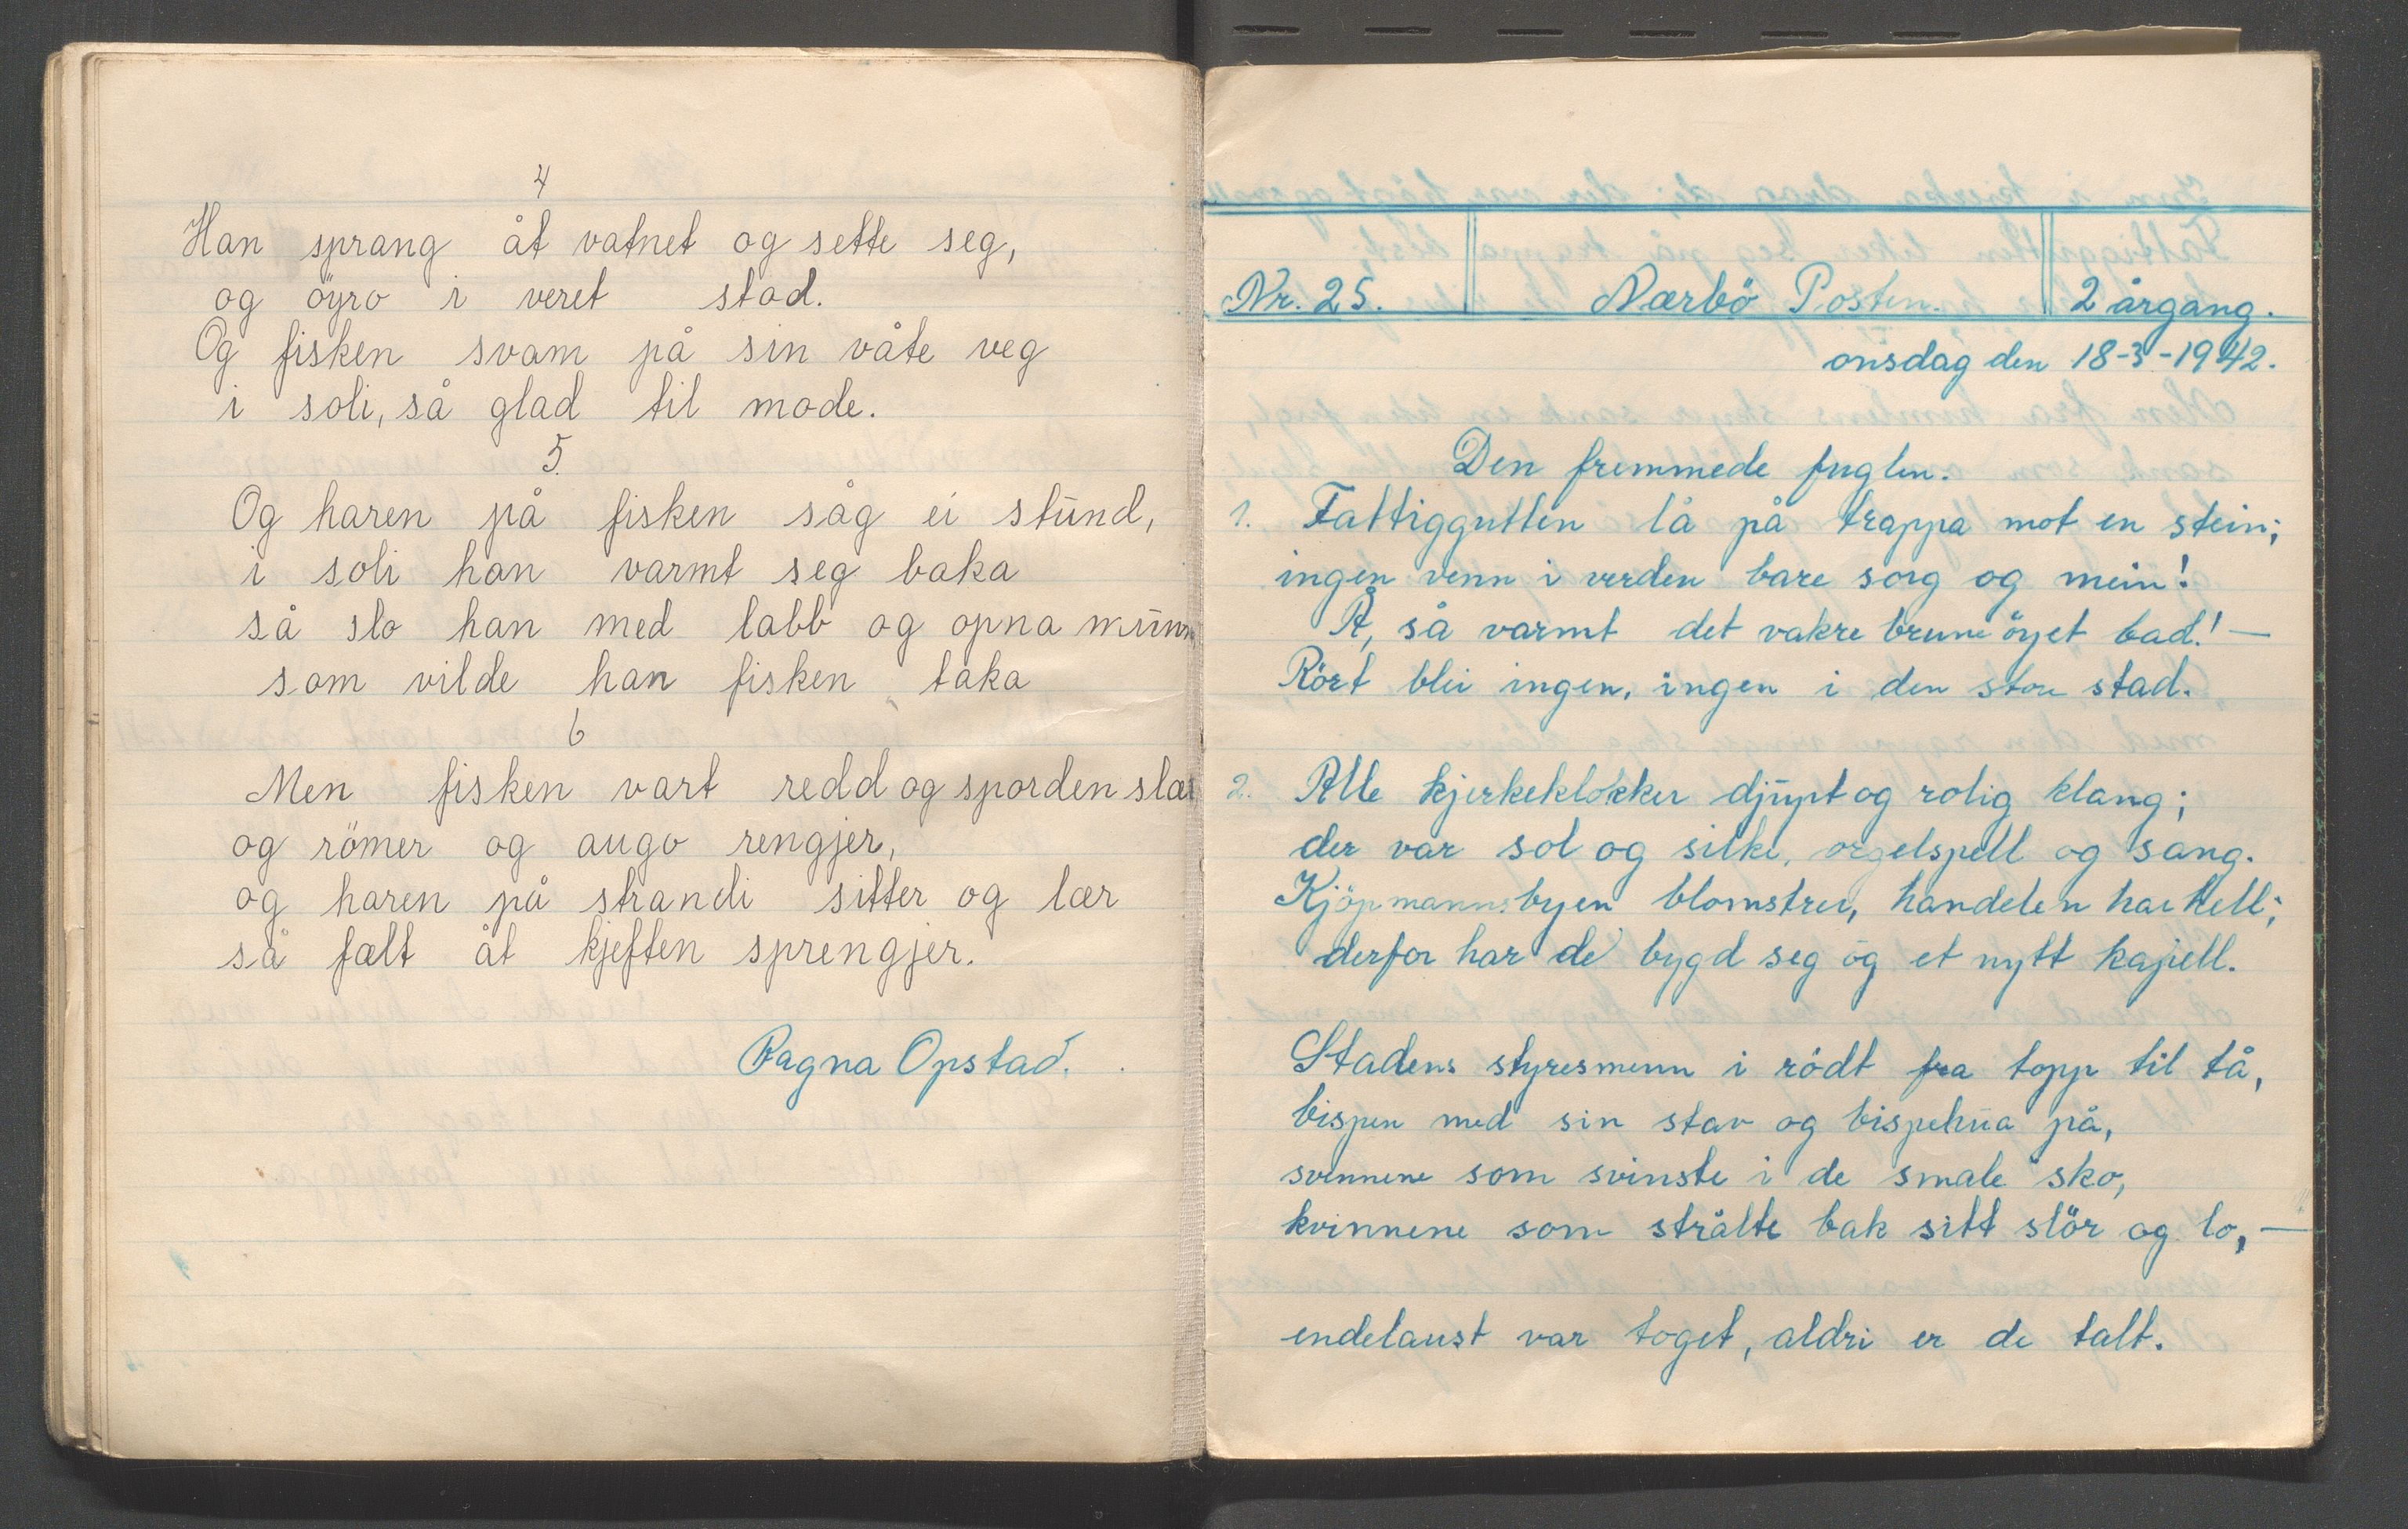 4
Han sprang åt vatnet og sette seg,
og öyro i veret stod.
Og fisken svam på sin våte veg
i soli, så glad til mode.
5.
Og haren på fisken såg ei stund,
i soli han varmt seg baka
så slo han med labb og opna munn
som vilde han fisken taka
6
Men fisken vart redd og sporden slær
og römer og augo rengjer,
og haren på strandi sitter og lær
så fælt åt kjeften sprengjer.
Ragna Opstad.
Nr. 25. Nærbö Posten. 2 årgang.
onsdag den 18-3-1942.
Den fremmede fuglen.
1. Fattiggutten lå på trappa mot en stein;
ingen venn i verden bare sorg og mein!
Å, så varmt det vakre brune öyet bad! —
Rört blei ingen, ingen i den store stad.
2. Alle kjerkeklokker djupt og rolig klang;
der var sol og silke, orgelspell og sang.
Kjöpmannsbyen blomstrer, handelen har hell;
derfor har de bygd seg og et nytt kapell.
Stadens styresmenn i rödt fra topp til tå,
bispen med sin stav og bispehua på,
svennene som svinste i de smale sko,
kvinnene som strålte bak sitt slör og lo, —
endelaust var toget, aldri er de talt.